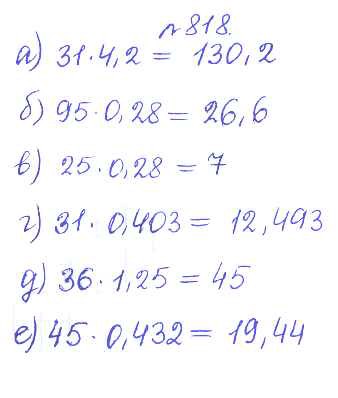 №818.
а) 31·4,2 = 130,2
б) 95·0,28 = 26,6
в) 25·0,28 = 7
г) 31·0,403 = 12,493
д) 36·1,25 = 45
е) 45·0,432 = 19,44